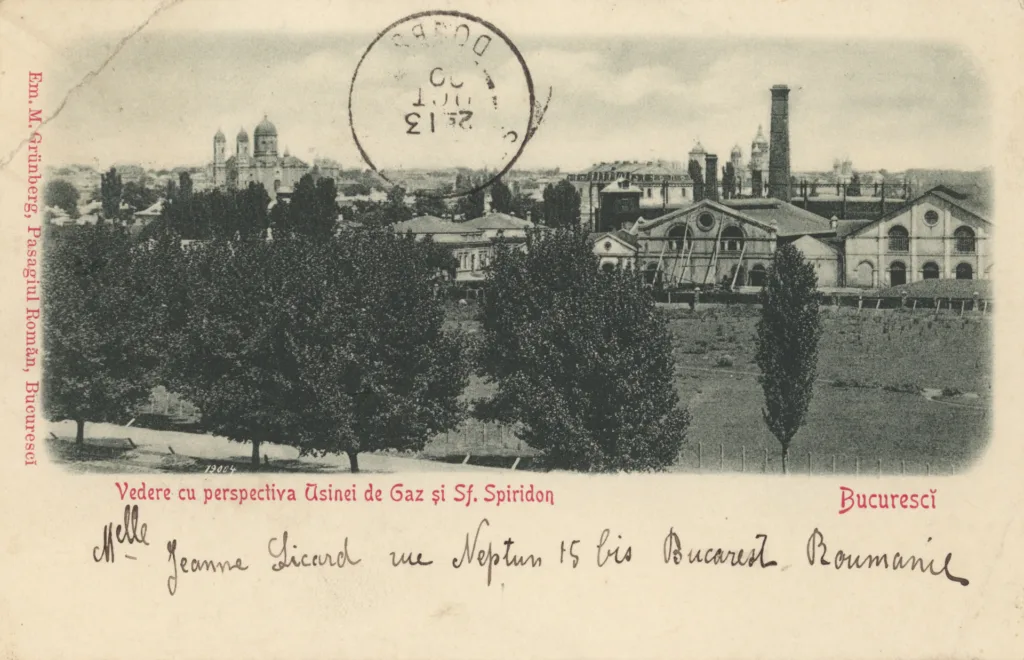 Em. M. Grünberg, Pasagiul Român, Bucurescĭ
OCT
13
00
19084
Vedere cu perspectiva Usinei de Gaz și Sf. Spiridon
Bucurescĭ
Mlle Jeanne Licard rue Neptun 15 bis Bucarest Roumanie